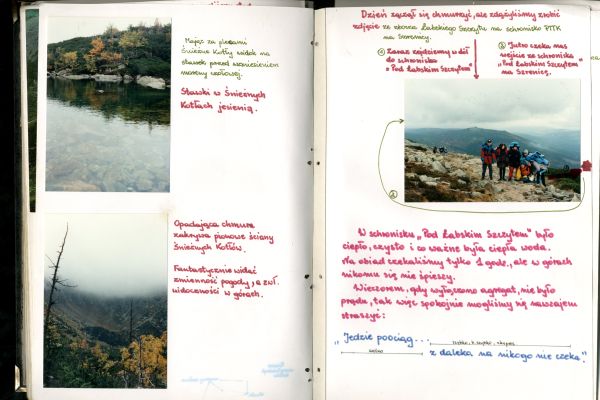 Mając za plecami
Śnieżne Kotły widok na
stawek przed wzniesieniem
moreny czołowej.
Stawki w Śnieżnych
Kotłach jesienią.
Opadająca chmura
zakrywa pionowe ściany
Śnieżnych Kotłów.
Fantastycznie widać
zmienność pogody, a zwł.
widoczności w górach.
Dzień zaczął się chmurzyć, ale zdążyliśmy zrobić
zdjęcie ze zbocza Łabskiego Szczytu na schronisko PTTK
na Szrenicy.
① Zaraz zejdziemy w dół
do schroniska
"Pod Łabskim Szczytem"
② Jutro czeka nas
wejście ze schroniska
"Pod Łabskim Szczytem"
na Szrenicę.
W schronisku "Pod Łabskim Szczytem" było
ciepło, czysto i co ważne była ciepła woda.
Na obiad czekaliśmy tylko 1 godz., ale w górach
nikomu się nie śpieszy.
Wieczorem, gdy wyłączono agregat, nie było
prądu, tak więc spokojnie mogliśmy się nawzajem
straszyć:
"Jedzie poociąg...
z daleka na nikogo nie czeka"